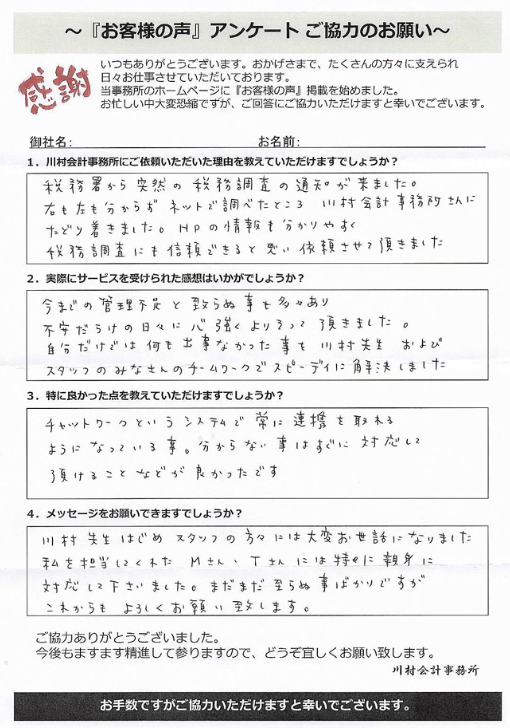 ～『お客様の声』アンケート ご協力のお願い～
感謝
いつもありがとうございます。おかげさまで、たくさんの方々に支えられ
日々お仕事させていただいております。
当事務所のホームページに『お客様の声』掲載を始めました。
お忙しい中大変恐縮ですが、ご回答にご協力いただけますと幸いでございます。
御社名： お名前：
1．川村会計事務所にご依頼いただいた理由を教えていただけますでしょうか？
税務署から突然の税務調査の通知が来ました。
右も左も分からず ネットで調べたところ 川村会計事務所さんに
たどり着きました。HPの情報も分かりやすく
税務調査にも信頼できると思い依頼させて頂きました
2．実際にサービスを受けられた感想はいかがでしょうか？
今までの管理不足と至らぬ事も多々あり
不安だらけの日々に心強くよりそって頂きました。
自分だけでは何も出事なかった事も川村先生 および
スタッフのみなさんのチームワークでスピーディに解決しました
3．特に良かった点を教えていただけますでしょうか？
チャットワークというシステムで常に連携を取れる
ようになっている事。分からない事はすぐに対応して
頂けることなどが良かったです
4．メッセージをお願いできますでしょうか？
川村先生はじめ スタッフの方々には大変お世話になりました
私を担当してくれた Mさん、Tさんには特に親身に
対応して下さいました。まだまだ至らぬ事ばかりですが
これからも よろしくお願い致します。
ご協力ありがとうございました。
今後もますます精進して参りますので、どうぞ宜しくお願い致します。
川村会計事務所
お手数ですがご協力いただけますと幸いでございます。